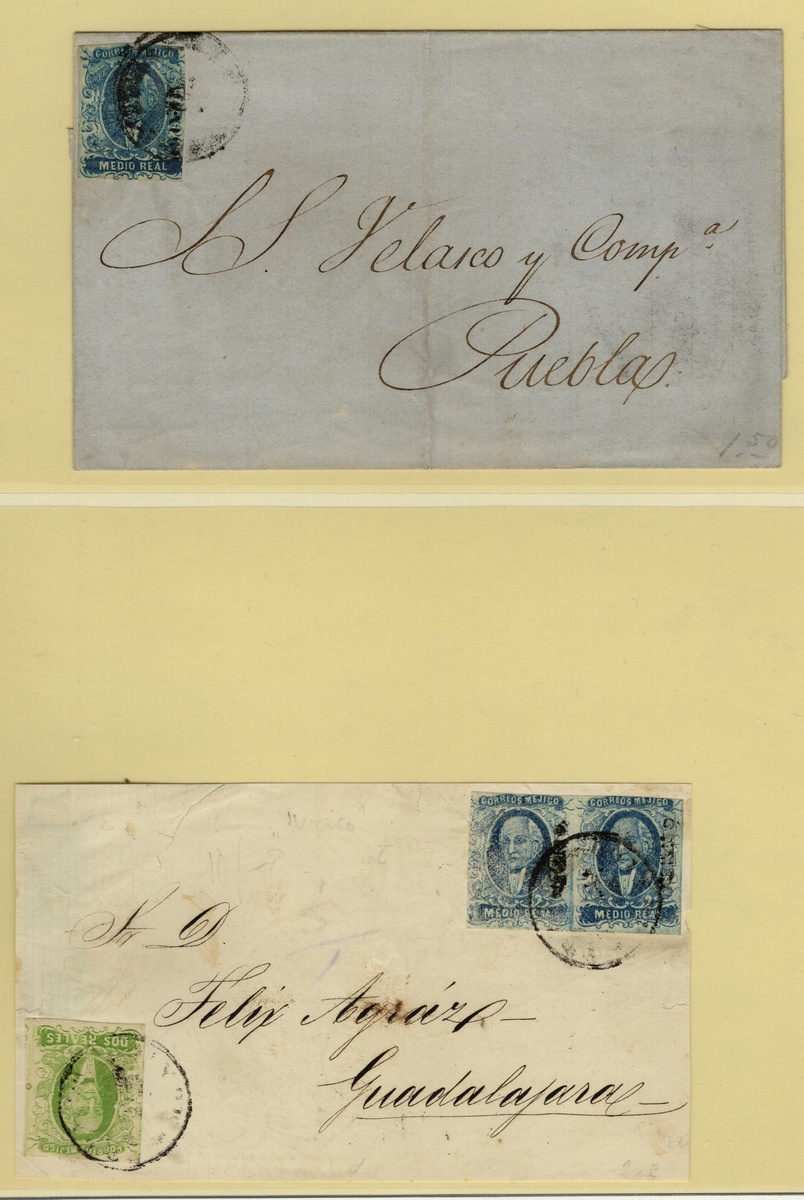 CORREOS MEJICO
MEDIO REAL
S. S. Velasco y Comp.ª
Puebla.
1.50
CORREOS MEJICO CORREOS MEJICO
MEDIO REAL MEDIO REAL
Sr D.
Felix Agráz—
Guadalajara—
DOS REALES
CORREOS MEJICO